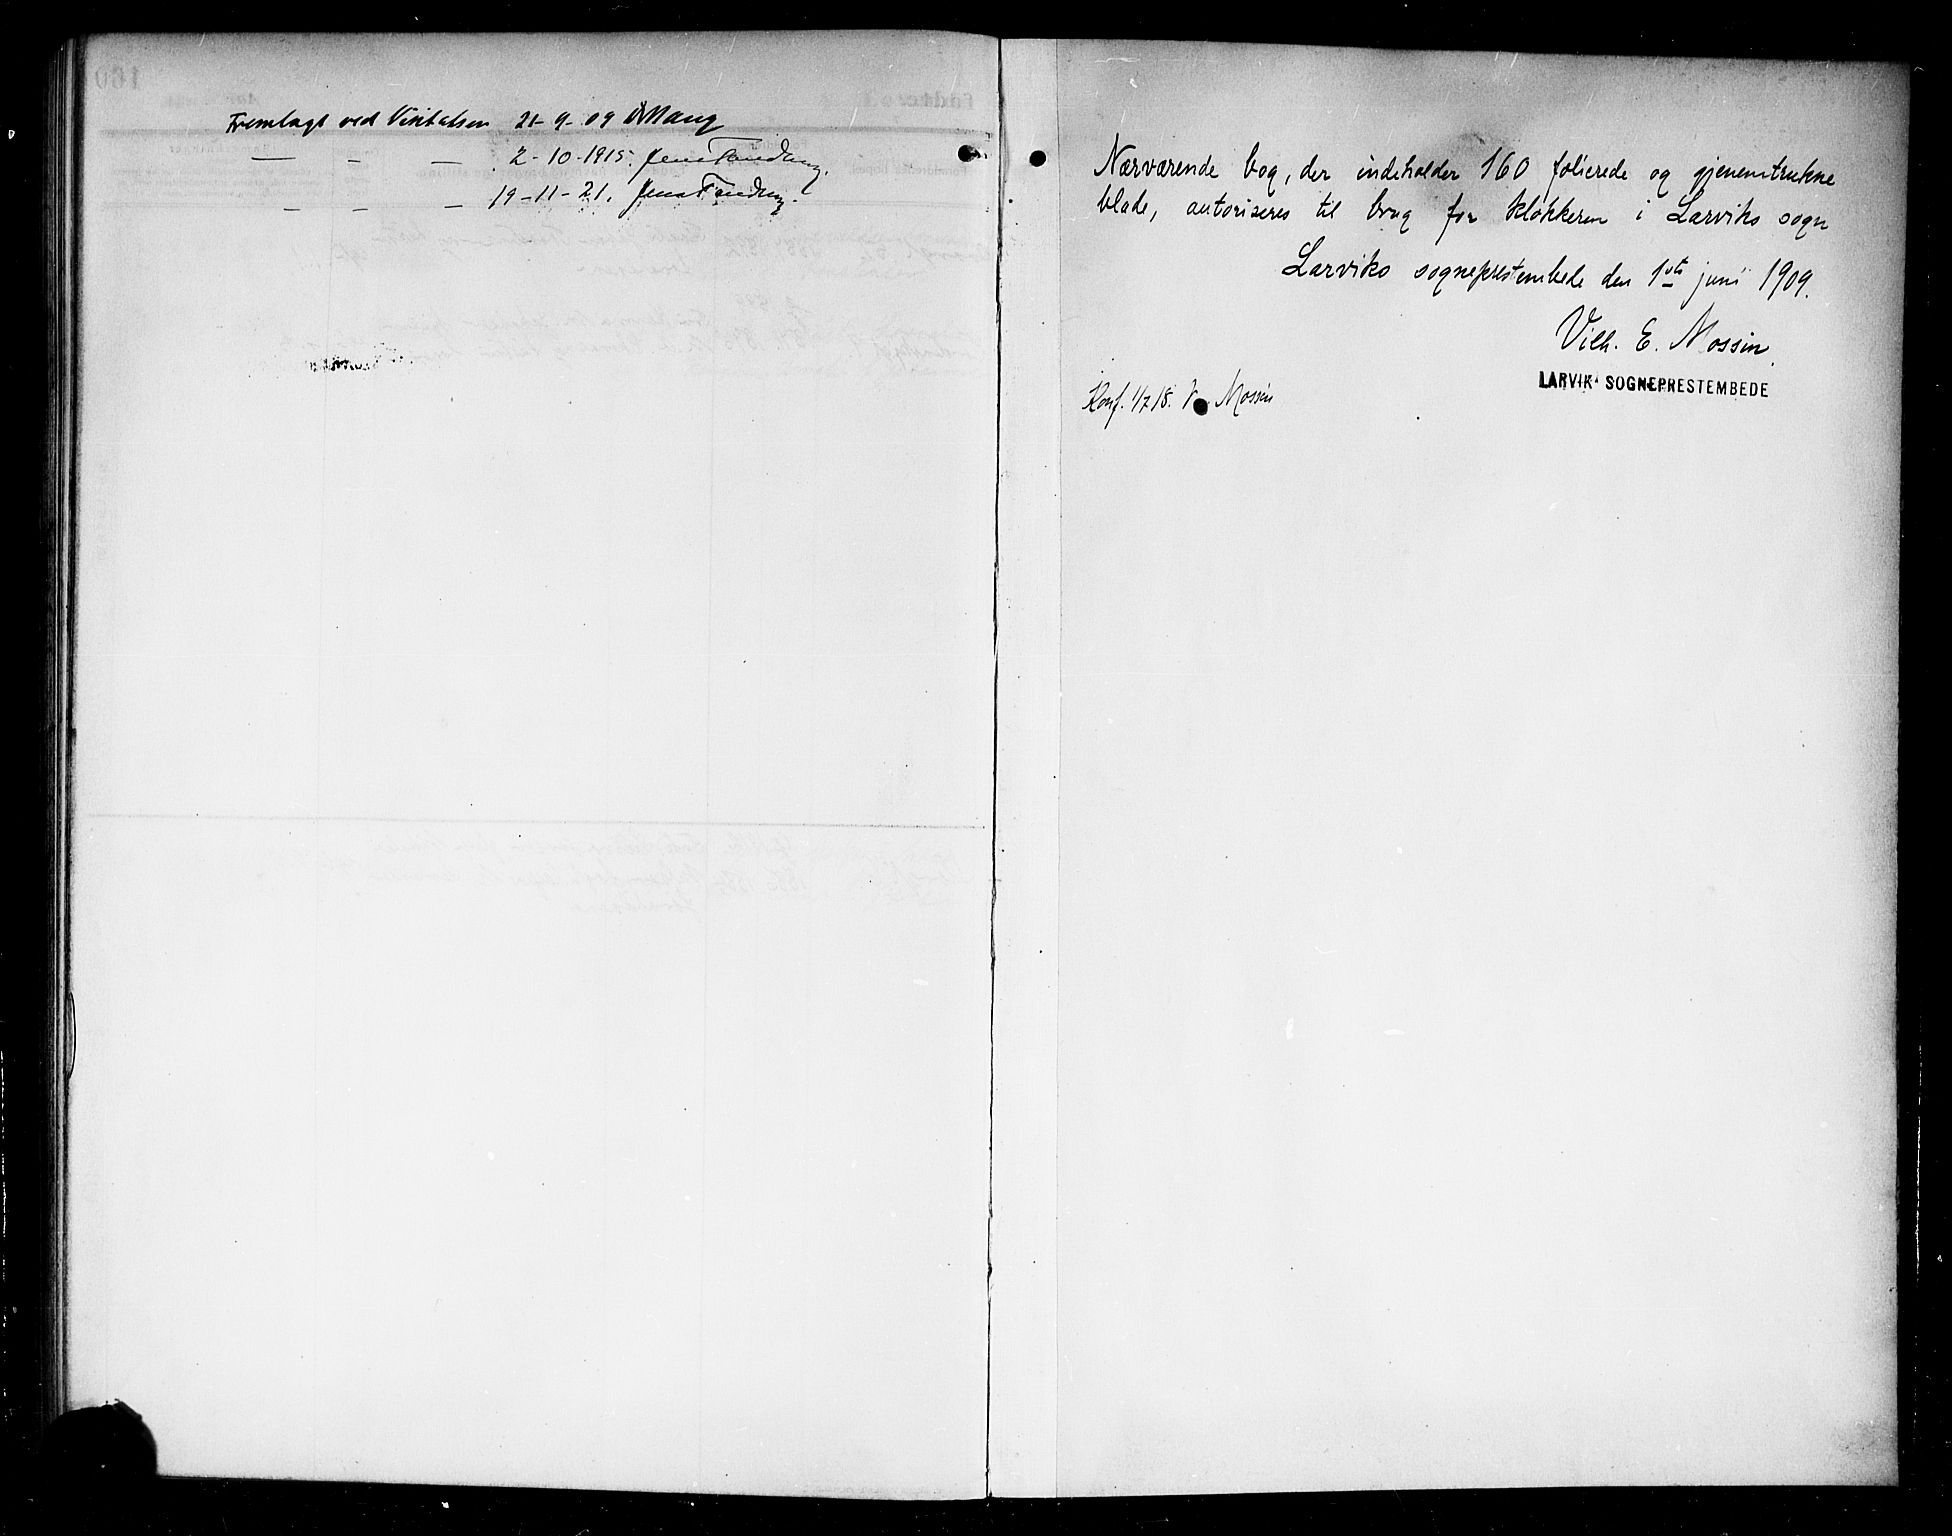 Fremlagt ved Visitatsen 21-9-09 Maug
— — — 2-10-1915. Jens Tandberg.
— — — 19-11-21. Jens Tandberg.
Nærværende bog, der indeholder 160 folierede og gjenemtrukne
blade, autoriseres til brug for klokkeren i Larviks sogn
Larviks sogneprestembede den 1ste juni 1909.
Vilh. E. Mossin.
LARVIK SOGNEPRESTEMBEDE
Konf. 1/7 18. V. Mossin